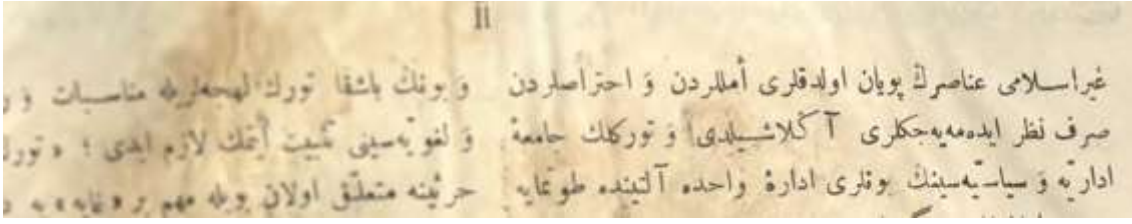 ii
غیراسلامی عناصرڭ پویان اولدقلری أمللردن وَ احتراصلردن
صرف نظر ایده‌میه‌جكلری آڭلاشیلدی وَ تورکلك جامعهٔ
اداریّه وَ سیاسیّه‌سینڭ بونلری ادارهٔ واحده آلتینده طوتمایه
وَ بونڭ باشقا تورك لهجه‌لریله مناسبات وَ
وَ لغویّه‌سینی تثبیت أیتمك لازم ایدی ؛ « تورك
حرثینه متعلّق اولان بویله مهم بر « غایه » یه